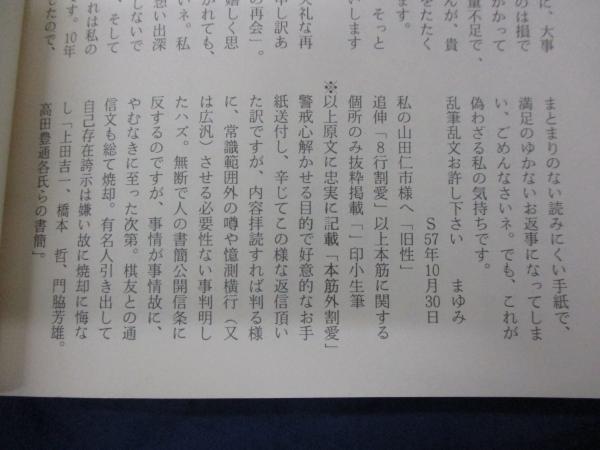 に、大事
のは損で
かかって
量不足で、
んが、貴
をたたく
ます。
そっと
いします
失礼な再
の再会」。
し訳あ
嬉しく思
かれても、
いネ。私
想い出深
しないで
、そして
れは私の
す。10年
したので、
まとまりのない読みにくい手紙で、
満足のゆかないお返事になってしま
い、ごめんなさいネ。でも、これが
偽わざる私の気持ちです。
乱筆乱文お許し下さい　まゆみ
S57年10月30日
私の山田仁市様へ「旧性」
追伸「8行割愛」以上本筋に関する
個所のみ抜粋掲載「」印小生筆
※以上原文に忠実に記載「本筋外割愛」
警戒心解かせる目的で好意的なお手
紙送付し、辛じてこの様な返信頂い
た訳ですが、内容拝読すれば判る様
に、常識範囲外の噂や憶測横行（又
は広汎）させる必要性ない事判明し
たハズ。無断で人の書簡公開信条に
反するのですが、事情が事情故に、
やむなきに至った次第。棋友との通
信文も総て焼却。有名人引き出して
自己存在誇示は嫌い故に焼却に悔な
し「上田吉一、橋本　哲、門脇芳雄。
高田豊通各氏らの書簡」。